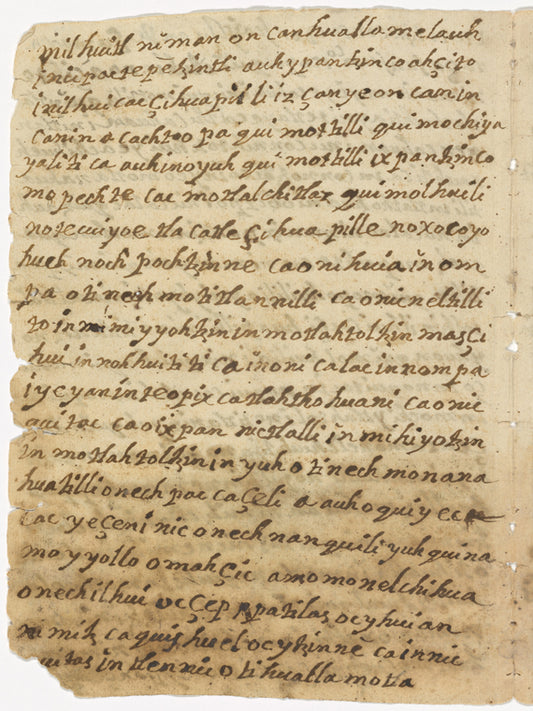 milhuitl niman on canhualla melauh
inic pactepetzintli auhypantzinco ahçito
inilhuicac çihuapilli iz çanyeon canin
canin acachtoo pa qui mottilli quimochiya
yaliti ca auhinoyuh qui mottilli ixpantzinco
mo pechte cac motlalchitlaz quimolhuili
notecuiyoe tlacatle çihua pille noxocoyo
hueh noch pochtzinne caonihuia inom
pa otinech motitlannilli caonicneltilli
to in miiyyohtzin inmotlahtoltzin maçi
hui in ohhuititica inoni calac innompa
iyeyan inteopixcatlahtohuani caonic
quittac caoixpan nictlalli inmihiyotzin
in motlahtoltzin in yuh otinech monana
huatillionech paccaçeli a auhoquiyec
cac yeçeni nic onech nanquili yuhquina
mo yyollo omahçic amo monelchihua
onechilhui occeppa patilas ocyhuian
nimitzcaquis huel ocytzinne cainnic
quitas in tlennic otihualla motla